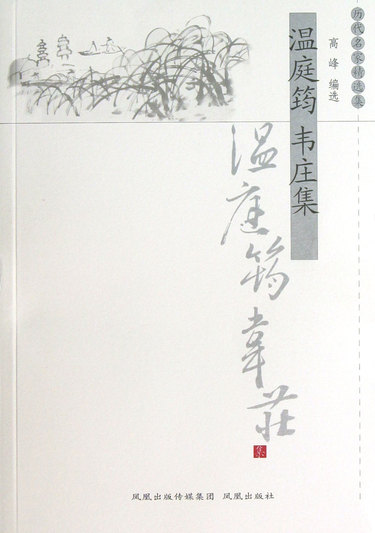 历代名家精选集
高峰 编选
温庭筠 韦庄集
温庭筠韋莊
集
凤凰出版传媒集团 凤凰出版社